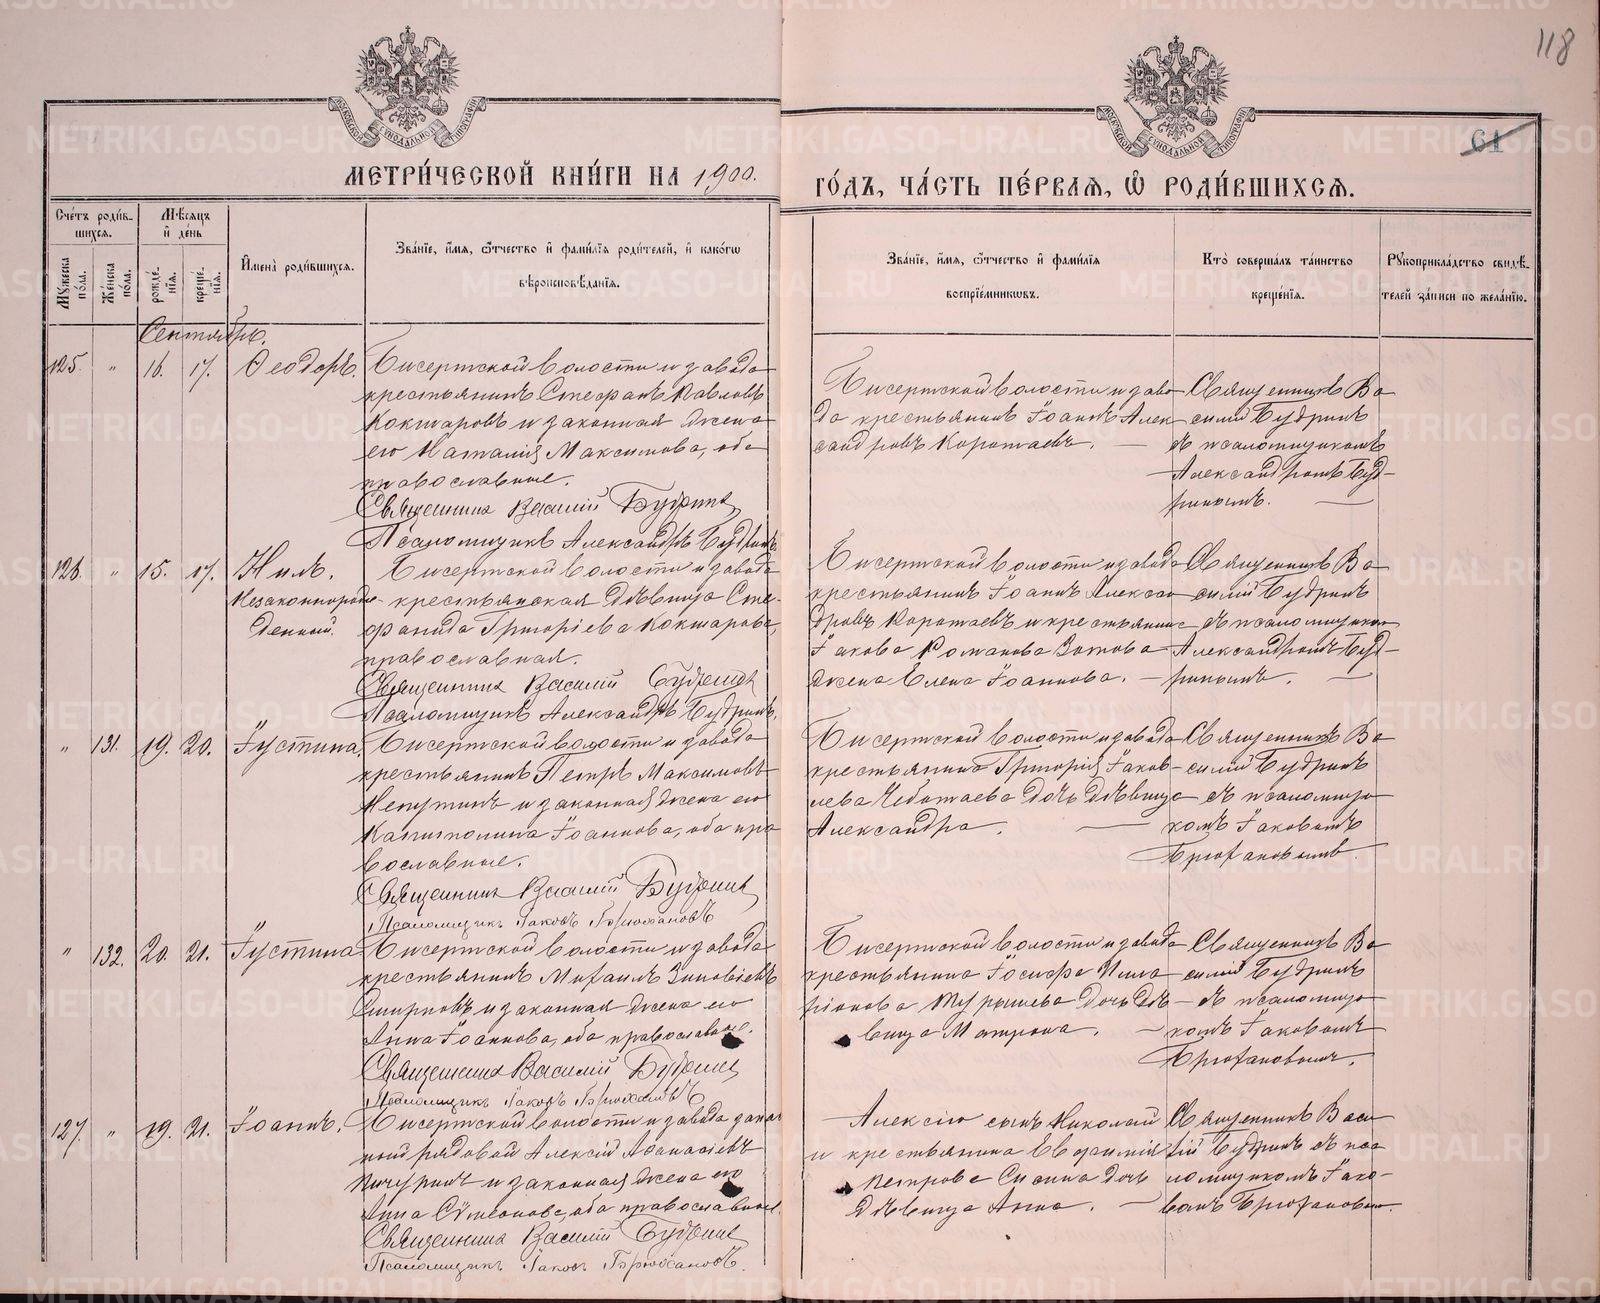 118
61
МЕТРИ́ЧЕСКОЙ КНИ́ГИ НА 1900.
ГО́ДЪ, ЧА́СТЬ ПЕ́РВАЯ, Ѡ҆ РОДИ́ВШИХСЯ.
Сче́тъ роди́в-
шихся.
Мужеска по́ла.
Же́нска по́ла.
Мѣ́сяцъ и҆ де́нь
рожде́нїя.
креще́нїя.
И҆мена̀ роди́вшихся.
Зва́нїе, и҆́мя, ѻ҆́тчество и҆ фами́лїя роди́телей, и҆ како́гѡ
вѣроисповѣ́данїя.
Зва́нїе, и҆́мя, ѻ҆́тчество и҆ фами́лїя
воспрїе́мникѡвъ.
Кто̀ соверша́лъ та́инство
креще́нїя.
Рꙋкоприкла́дство свидѣ́-
телей за́писи по жела́нїю.
Сентябрь.
125. " 16. 17. Ѳеодоръ.
Бисертской волости и завода
крестьянинъ Стефанъ Павловъ
Кокшаровъ и законная жена
его Наталія Максимова, оба
православные.
Священникъ Василій Будринъ
Псаломщикъ Александръ Будринъ
Бисертской волости и заво-
да крестьянинъ Іоаннъ Алек
сандровъ Коротаевъ.
Священникъ Ва
силій Будринъ
съ псаломщикомъ
Александромъ Буд-
ринымъ.
126. " 15. 17. Нилъ.
Незаконнорож-
денный.
Бисертской волости и завода
крестьянская дѣвица Сте-
фанида Григоріева Кокшарова,
православная.
Священникъ Василій Будринъ
Псаломщикъ Александръ Будринъ.
Бисертской волости и завода
крестьянинъ Іоаннъ Алексан
дровъ Коротаевъ и крестьянина
Іакова Романова Зотова
жена Елена Іоаннова.
Священникъ Ва
силій Будринъ
съ псаломщикомъ
Александромъ Буд-
ринымъ.
" 131. 19. 20. Іустина.
Бисертской волости и завода
крестьянинъ Петръ Максимовъ
Непутинъ и законная жена его
Капитолина Іоаннова, оба пра
вославные.
Священникъ Василій Будринъ
Псаломщикъ Іаковъ Брюхановъ
Бисертской волости и завода
крестьянина Григорія Іаков-
лева Чеботаева дочь дѣвица
Александра.
Священникъ Ва
силій Будринъ
съ псаломщи
комъ Іаковомъ
Брюхановымъ.
" 132. 20. 21. Іустина
Бисертской волости и завода
крестьянинъ Михаилъ Зиновіевъ
Смирновъ и законная жена его
Анна Іоаннова, оба православные.
Священникъ Василій Будринъ
Псаломщикъ Іаковъ Брюхановъ
Бисертской волости и завода
крестьянина Іосифа Ила
ріонова Турышева дочь дѣ-
вица Матрона.
Священникъ Ва
силій Будринъ
съ псаломщи
комъ Іаковомъ
Брюхановымъ.
127. " 19. 21. Іоаннъ.
Бисертской волости и завода запас
ный рядовой Алексій Аѳанасіевъ
Пичугинъ и законная жена его
Анна Сѵмеонова, оба православные
Священникъ Василій Будринъ
Псаломщикъ Іаковъ Брюхановъ.
Алексію сынъ Николай
и крестьянина Евфимія
Петрова дочь
дѣвица Анна.
Священникъ Васи
лій Будринъ съ пса
ломщикомъ Іако-
вомъ Брюхановымъ.
METRIKI.GASO-URAL.RU